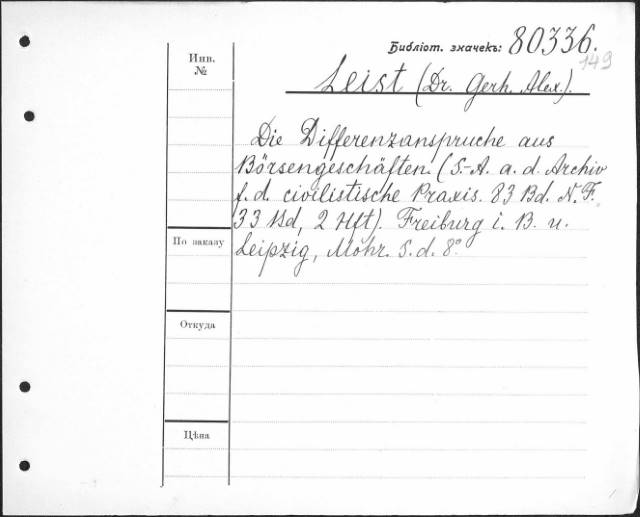 Библіот. значекъ: 80336.
149
Инв.
№
Leist (Dr. Gerh. Alex.).
Die Differenzanspruche aus
Börsengeschäften. (S.-A. a. d. Archiv
f. d. civilistische Praxis. 83 Bd. N. F.
33 Bd, 2 Hft). Freiburg i. B. u.
По заказу
Leipzig, Mohr. S. d. 8°.
Откуда
Цѣна